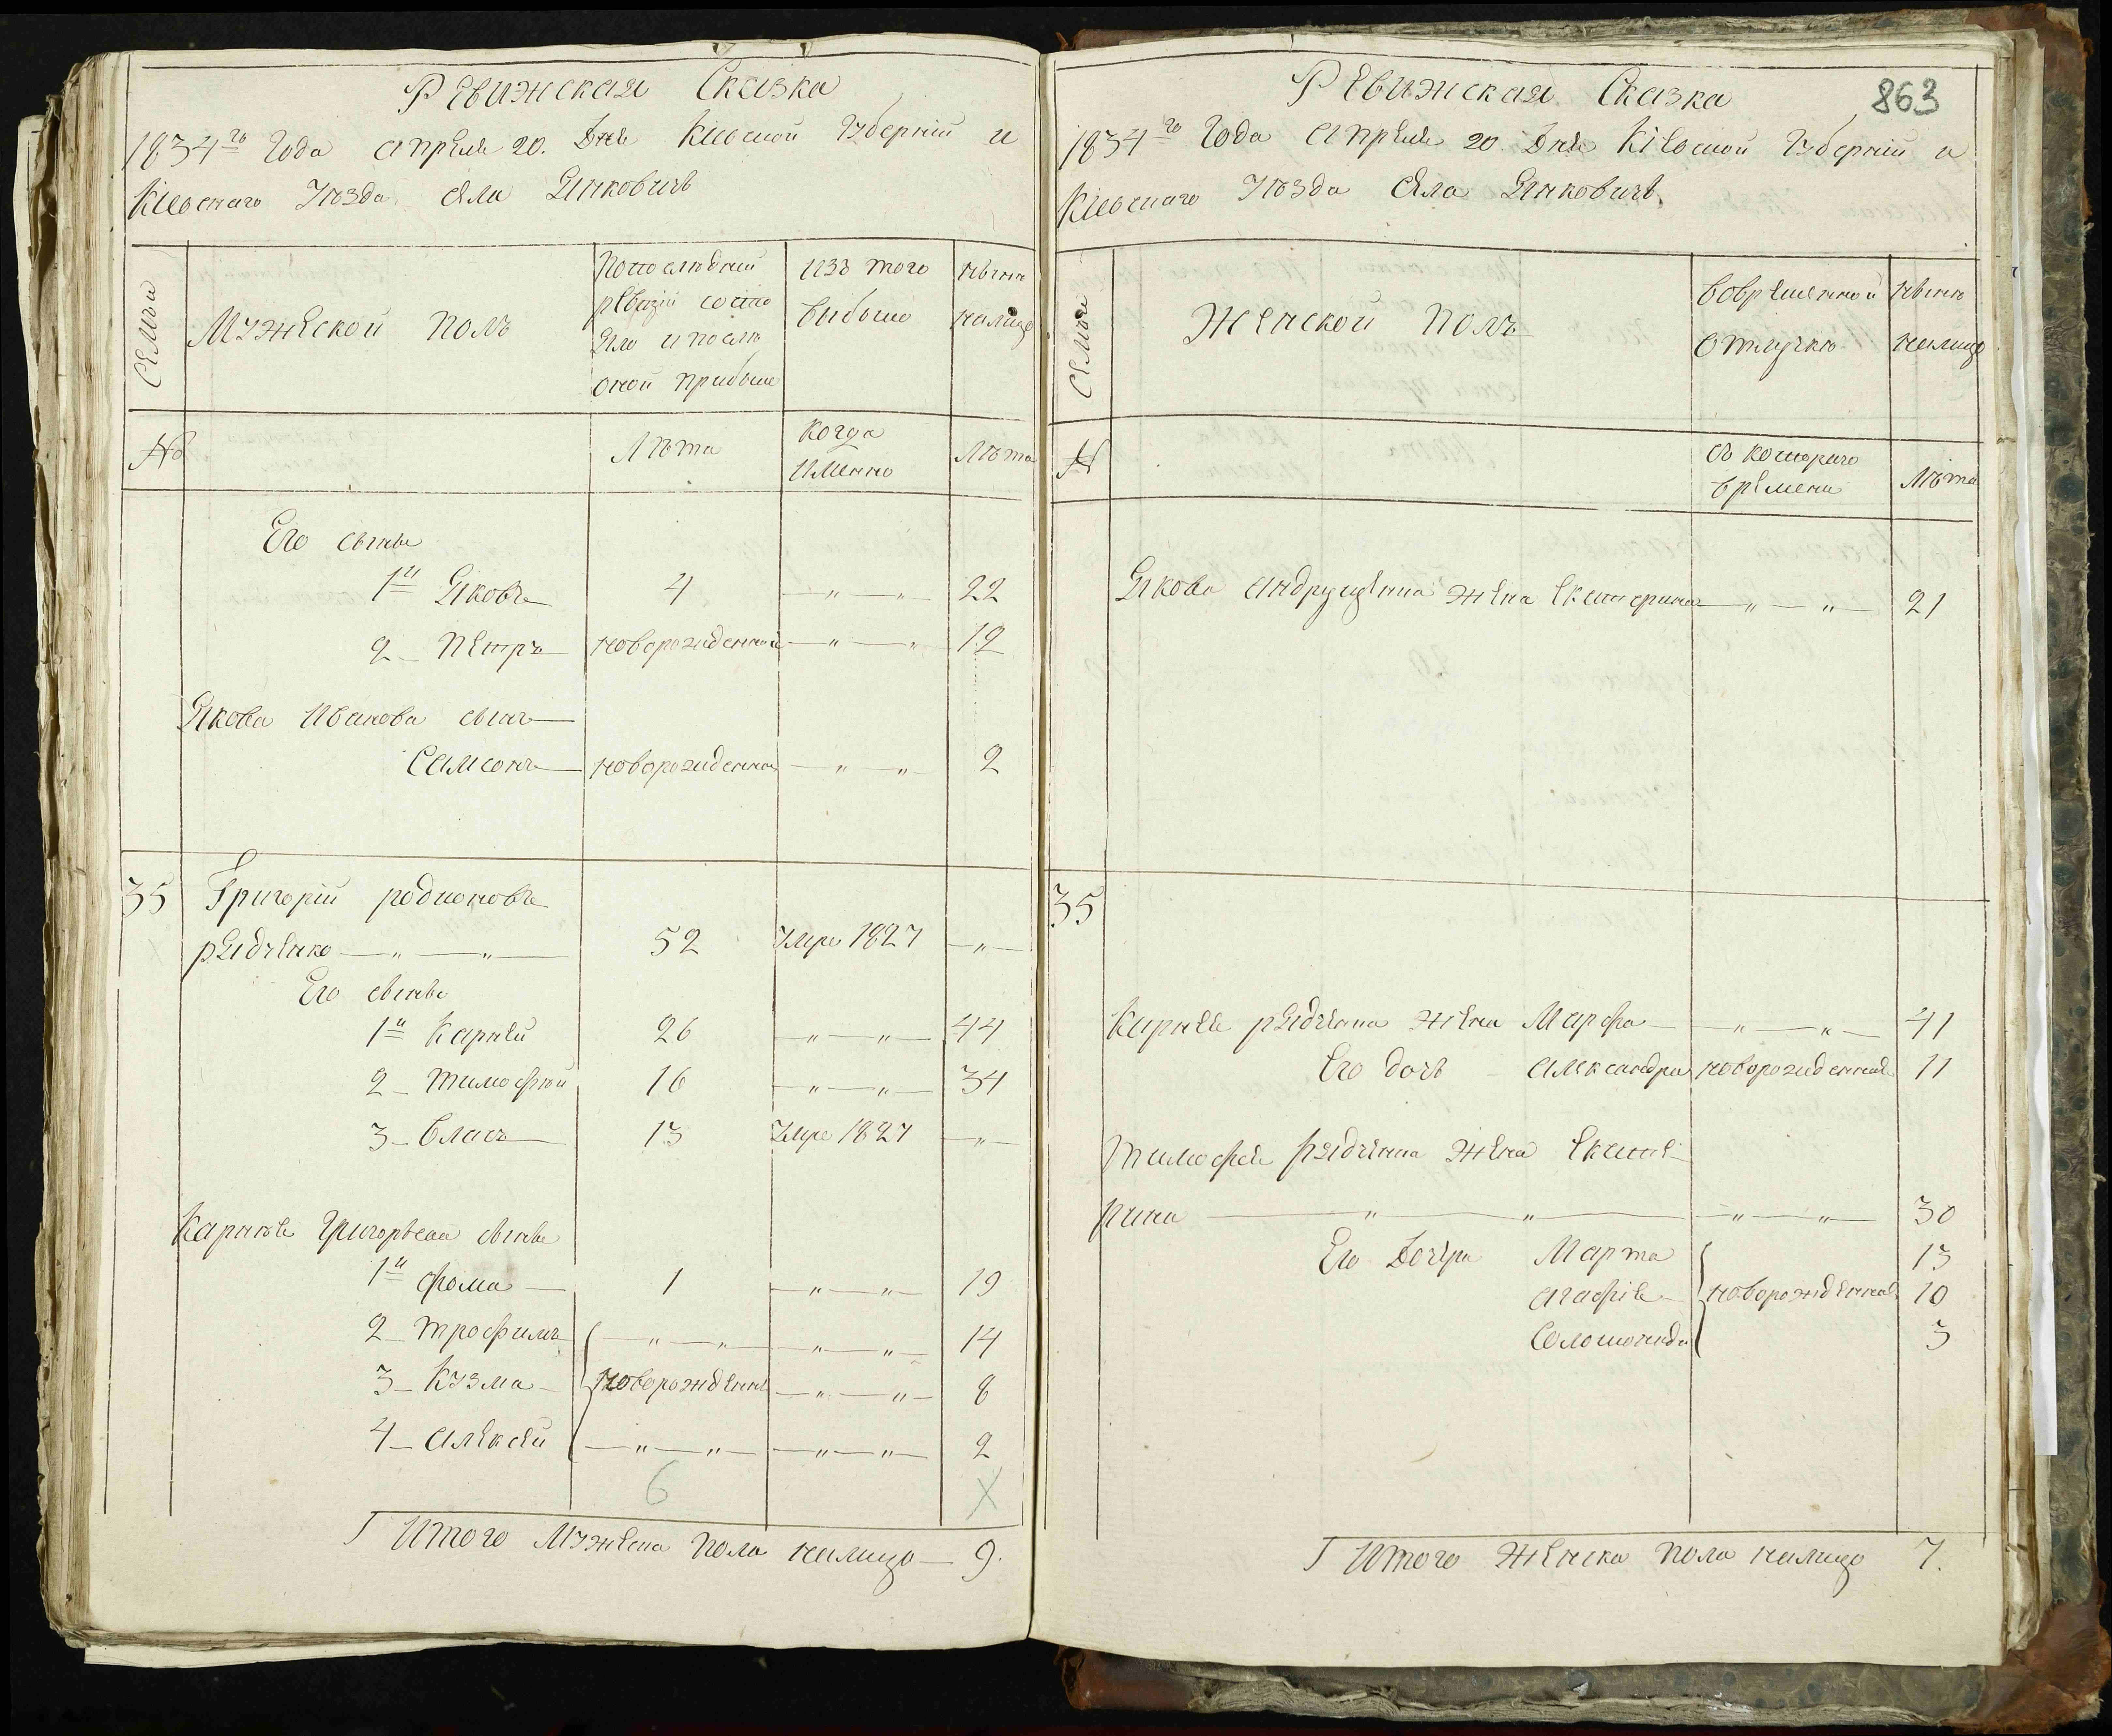 Ревижская Сказка
1834го Года Апреля 20. Дня Кіевской Губерніи и
Кіевскаго Уѣзда села Янковичь
Семьи
Мужеской полъ
По последней
ревизіи состо
яло и после
оной прибыло
изъ того
выбыло
ныне
налицо
№
Лѣта
когда
именно
Лѣта
Его сынья
1й Яковъ 4 — „ — „ 22
2 — Петръ новорожденной — „ — „ 12
Якова Иванова сынъ
Самсонъ новорожденной — „ — „ 2
35 Григорій родионовъ
рядченко — „ — „ — 52 Умре 1827 — „ —
Его сынья
1й Карней 26 — „ — „ — 44
2 — тимофей 16 — „ — „ — 34
3 — власъ 13 Умре 1827 — „ —
Карнѣя Григорьева сынья
1й фома — 1 — „ — „ — 19
2 — трофимъ — „ — „ — „ — „ — 14
3 — Кузма — новорожденны — „ — „ — 8
4 — Алексей — „ — „ — „ — „ — 2
6 X
Итого Мужеска пола налицо — 9.
863
Ревижская Сказка
1834го Года Апреля 20. Дня Кіевской Губерніи и
Кіевскаго Уѣзда села Янковичь.
Семьи
Женской полъ
Вовременной
отлучке
ныне
налицо
№
съ котораго
времени
Лѣта
Якова Андрущенка жена Екатерина — „ — „ — 21
35
Карнея рядченка жена Марфа — „ — „ — 41
Его дочь — Александра новорожденная 11
Тимофея рядченка жена Екате-
рина — „ — „ — „ — „ — 30
Его Дочера Марта 13
Агафія — новорожденная 10
Соломонида 3
Итого Женска пола налицо 7.